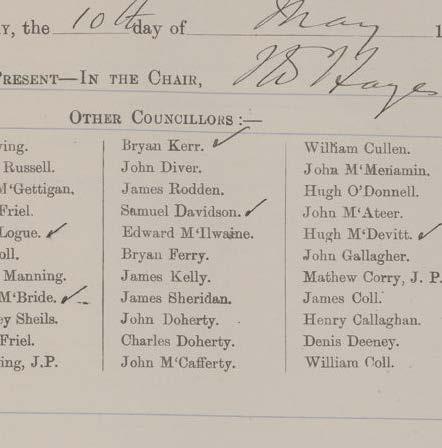 Y, the 10th day of May 1
PRESENT—IN THE CHAIR, Hayes
OTHER COUNCILLORS :—
ving.
Russell.
M‘Gettigan.
Friel.
Logue.
oll.
Manning.
M‘Bride.
ey Sheils.
Friel.
ing, J.P.
Bryan Kerr.
John Diver.
James Rodden.
Samuel Davidson.
Edward M‘Ilwaine.
Bryan Ferry.
James Kelly.
James Sheridan.
John Doherty.
Charles Doherty.
John M‘Cafferty.
William Cullen.
John M‘Menamin.
Hugh O’Donnell.
John M‘Ateer.
Hugh M‘Devitt.
John Gallagher.
Mathew Corry, J. P.
James Coll.
Henry Callaghan.
Denis Deeney.
William Coll.